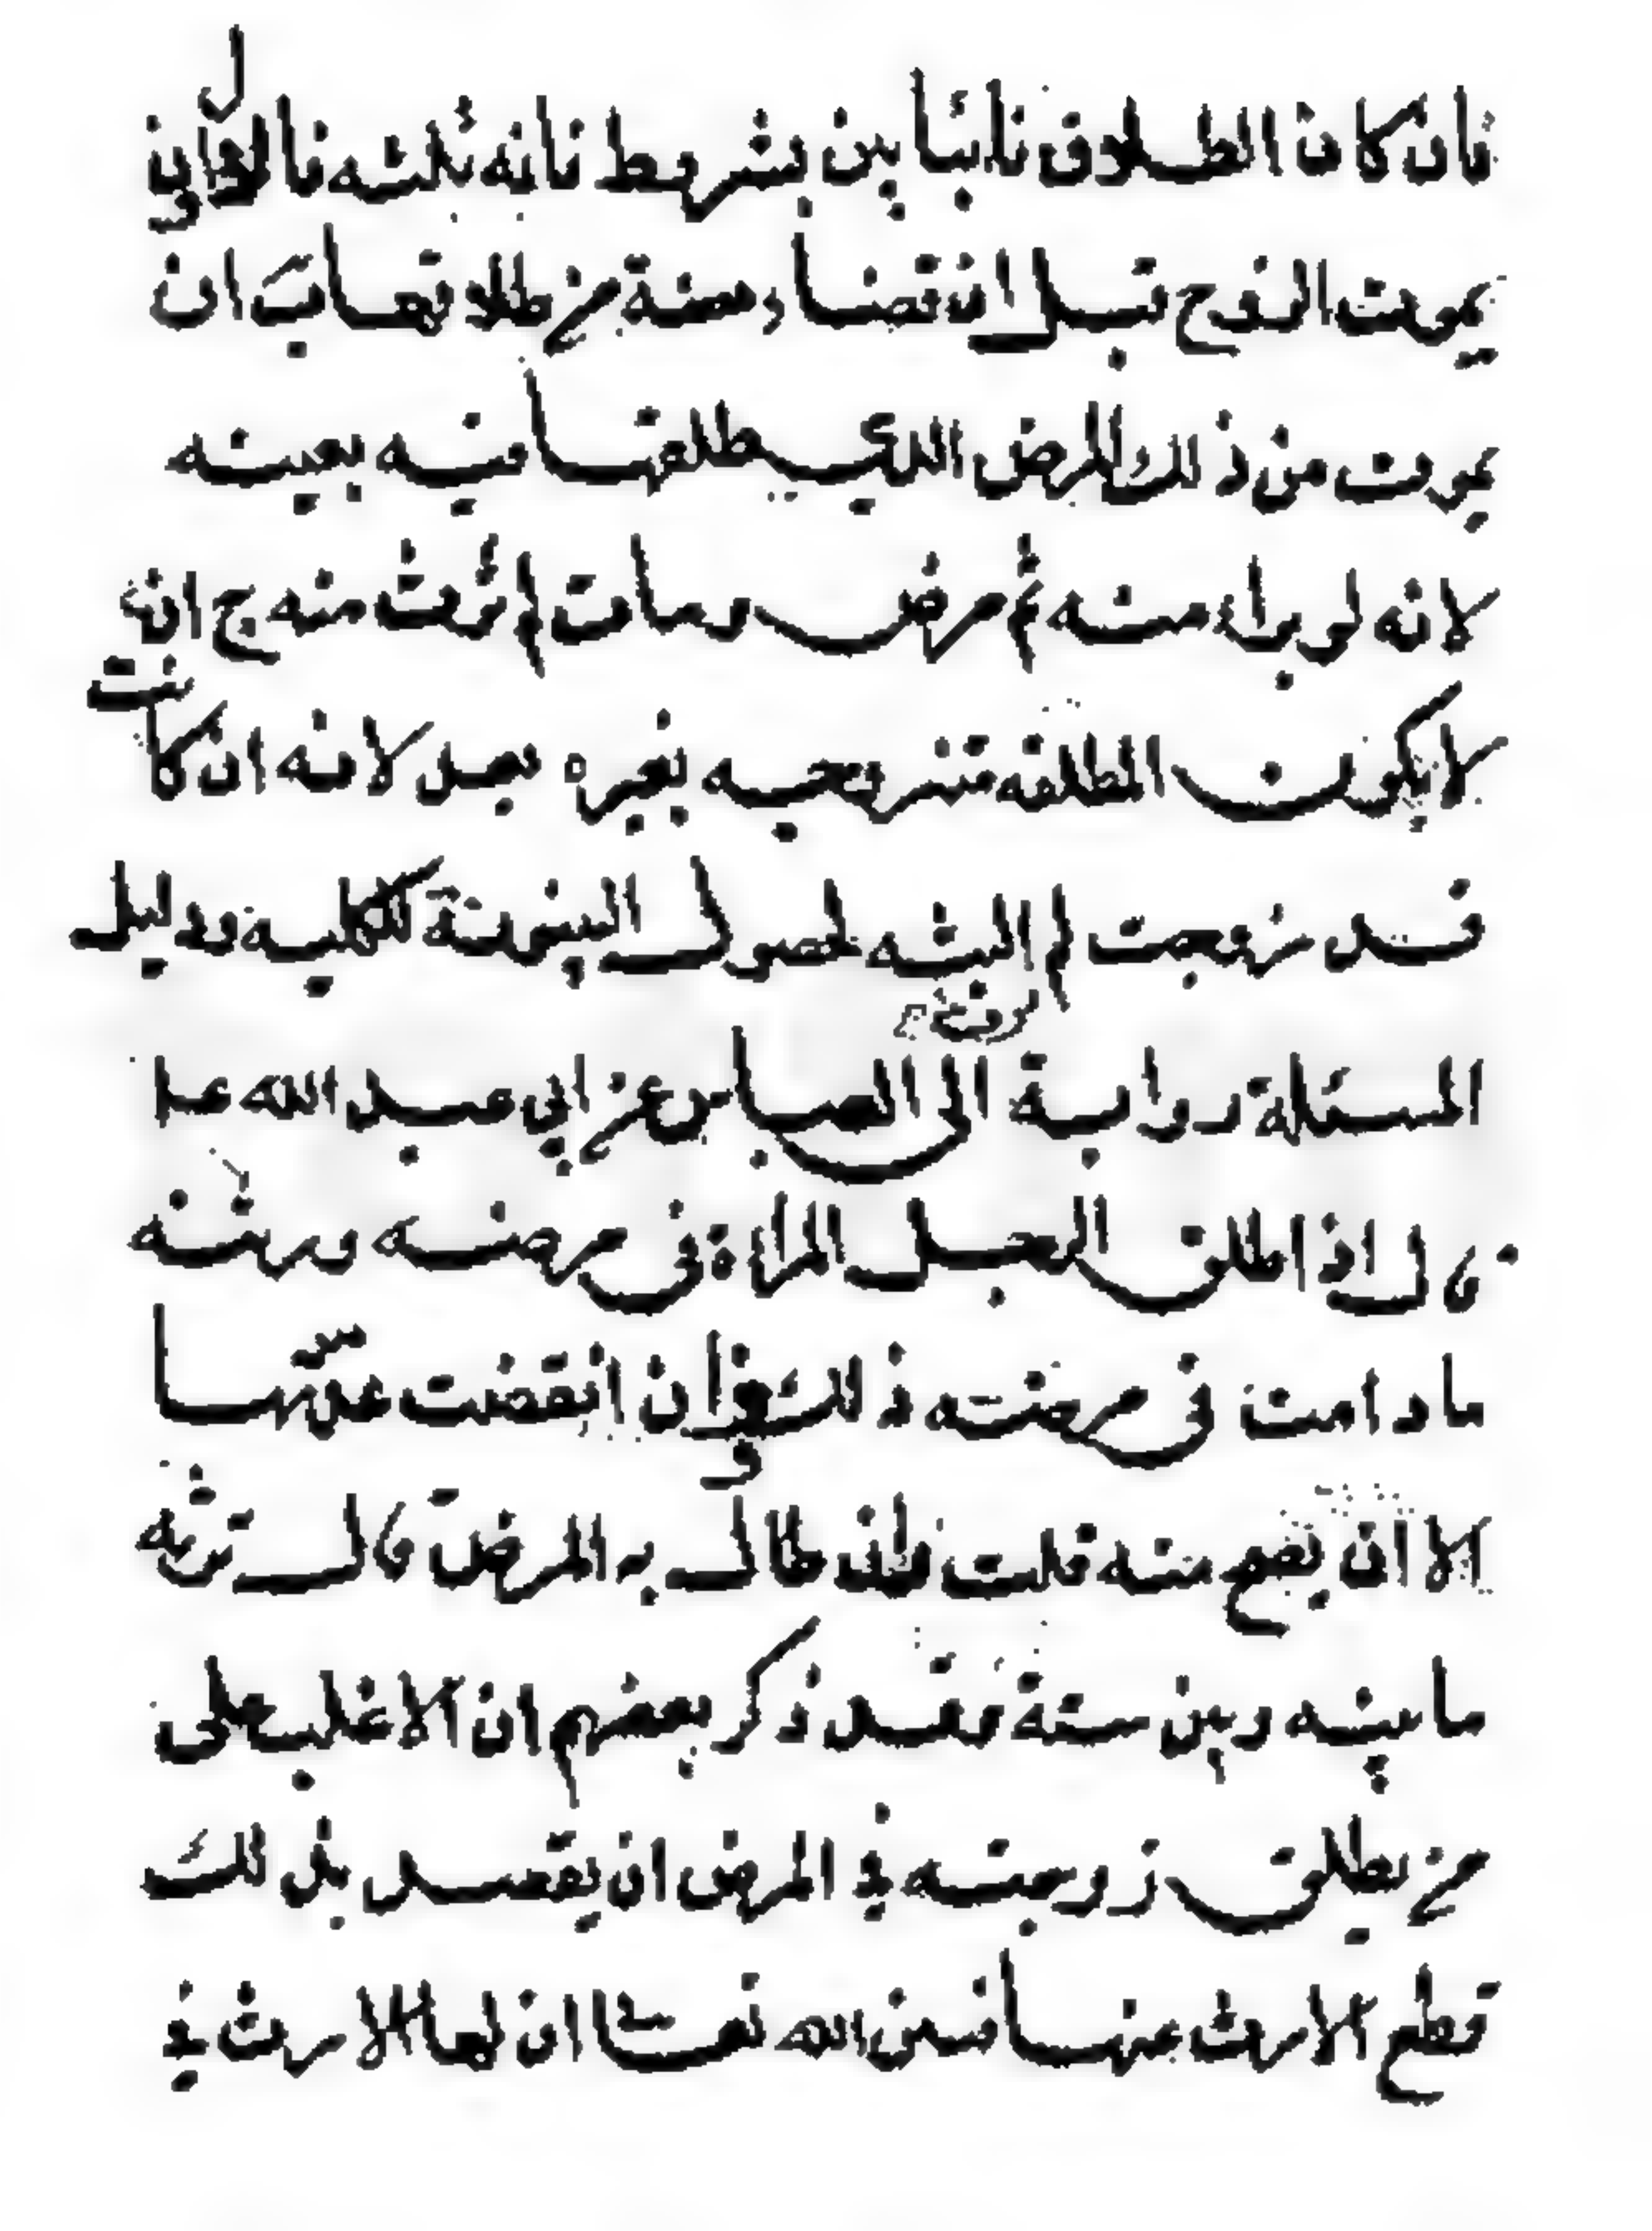 فان كان الطلاق نايبا بين بشروط فانه ثلثه فالاول ان
يموت الزوج قبل انقضاء سنة من طلاقها ب ان
يموت من ذلك المرض الذي طلقها فيه بعينه
لانه لو براء منه ثم مرض ومات لم ترث منه ج ان
لا يكون المطلقه متزوجيه بغيره بعد لانه ان كانت
قد تزوجت لم ترثه لحصول البينونة الكليه ودليل
المسئلة رواية ابى العباس عن ابي عبد الله ع
قال اذا طلق الرجل المراءة فى مرضه ورثته
مادامت فى مرضته ذلك وان انقضت عدتها
الا ان يصح منه قلت فان طال به المرض قال ترثه
ما بينه وبين سنة وقد ذكر بعضهم ان الاغلب على
من يطلق زوجته في المرض ان يقصد بذلك
قطع الارث عنها فبين الله تعالى ان لها الارث في